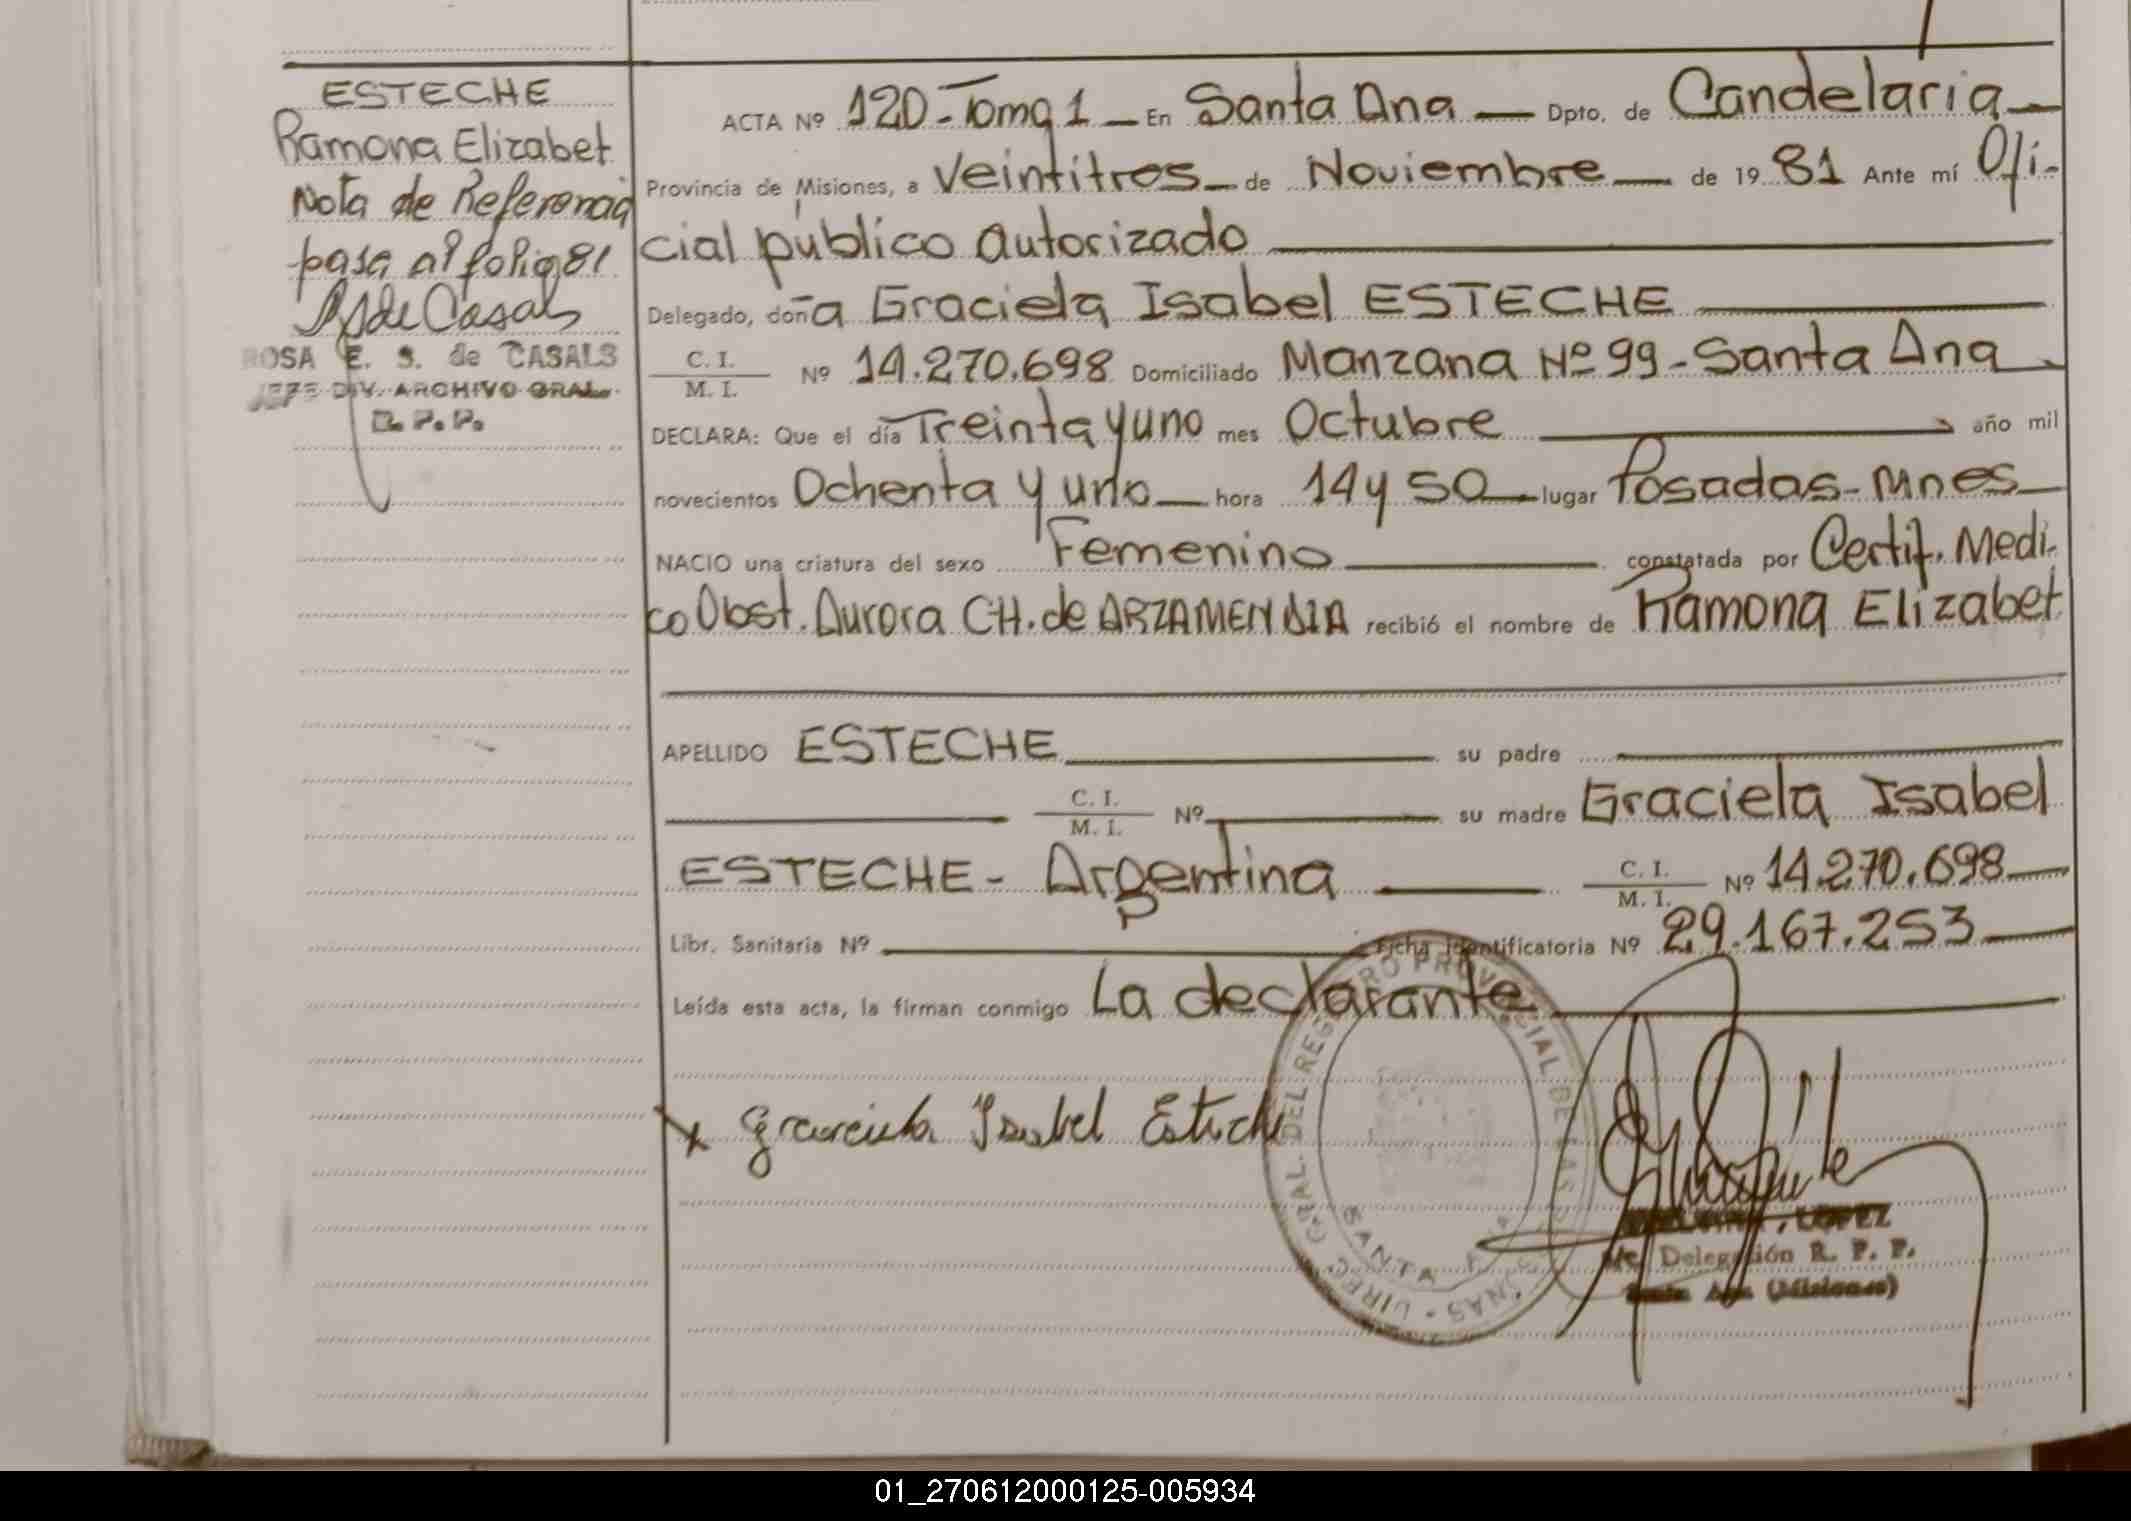 ESTECHE
Ramona Elizabet
Nota de Referencia
pasa al folio 81
RSde Casals
ROSA E. S. de CASALS
JEFE DIV. ARCHIVO GRAL.
R. P. P.
ACTA Nº 120-Tomo 1 En Santa Ana Dpto. de Candelaria
Provincia de Misiones, a Veintitres de Noviembre de 19 81 Ante mí Ofi-
cial público autorizado
Delegado, doña Graciela Isabel ESTECHE
C. I.
M. I. Nº 14.270.698 Domiciliado Manzana Nº 99-Santa Ana
DECLARA: Que el día Treinta y uno mes Octubre año mil
novecientos Ochenta y uno hora 14 y 50 lugar Posadas-Mnes
NACIO una criatura del sexo Femenino constatada por Certif. Medi-
co Obst. Aurora CH. de ARZAMENDIA recibió el nombre de Ramona Elizabet
APELLIDO ESTECHE su padre
C. I.
M. I. Nº su madre Graciela Isabel
ESTECHE- Argentina C. I.
M. I. Nº 14.270.698
Libr. Sanitaria Nº Ficha Identificatoria Nº 29.167.253
Leída esta acta, la firman conmigo La declarante
x Graciela Isabel Esteche
DIREC. GRAL. DEL REGISTRO PROVINCIAL DE LAS PERSONAS
SANTA ANA
LOPEZ
a/c. Delegación R. P. P.
Santa Ana (Misiones)
01_270612000125-005934